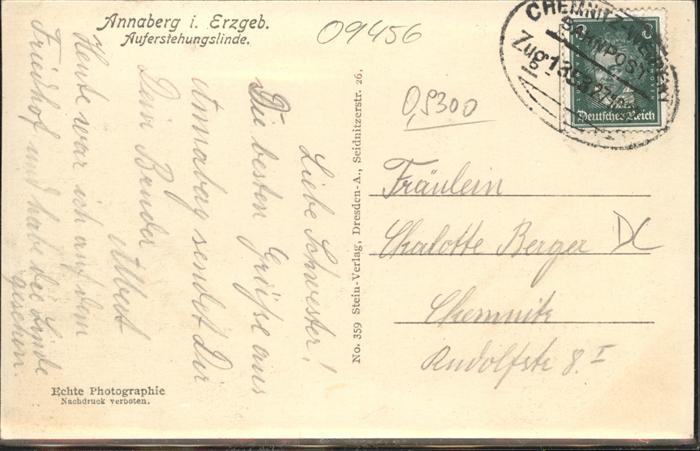 Annaberg i. Erzgeb.
Auferstehungslinde.
09456
0,5300
CHEMNITZ-
BAHNPOST
Zug 1353
Deutsches Reich
Liebe Schwester!
Die besten Grüße aus
Annabag sendet Dir
Dein Bruder
Albert
Heute war ich auf dem
Friedhof und habe die Linde
gesehen.
No. 359 Stein-Verlag, Dresden-A., Seidnitzerstr. 26.
Fräulein
Chalotte Berger
Chemnitz
Rudolfstr 8. I
Echte Photographie
Nachdruck verboten.